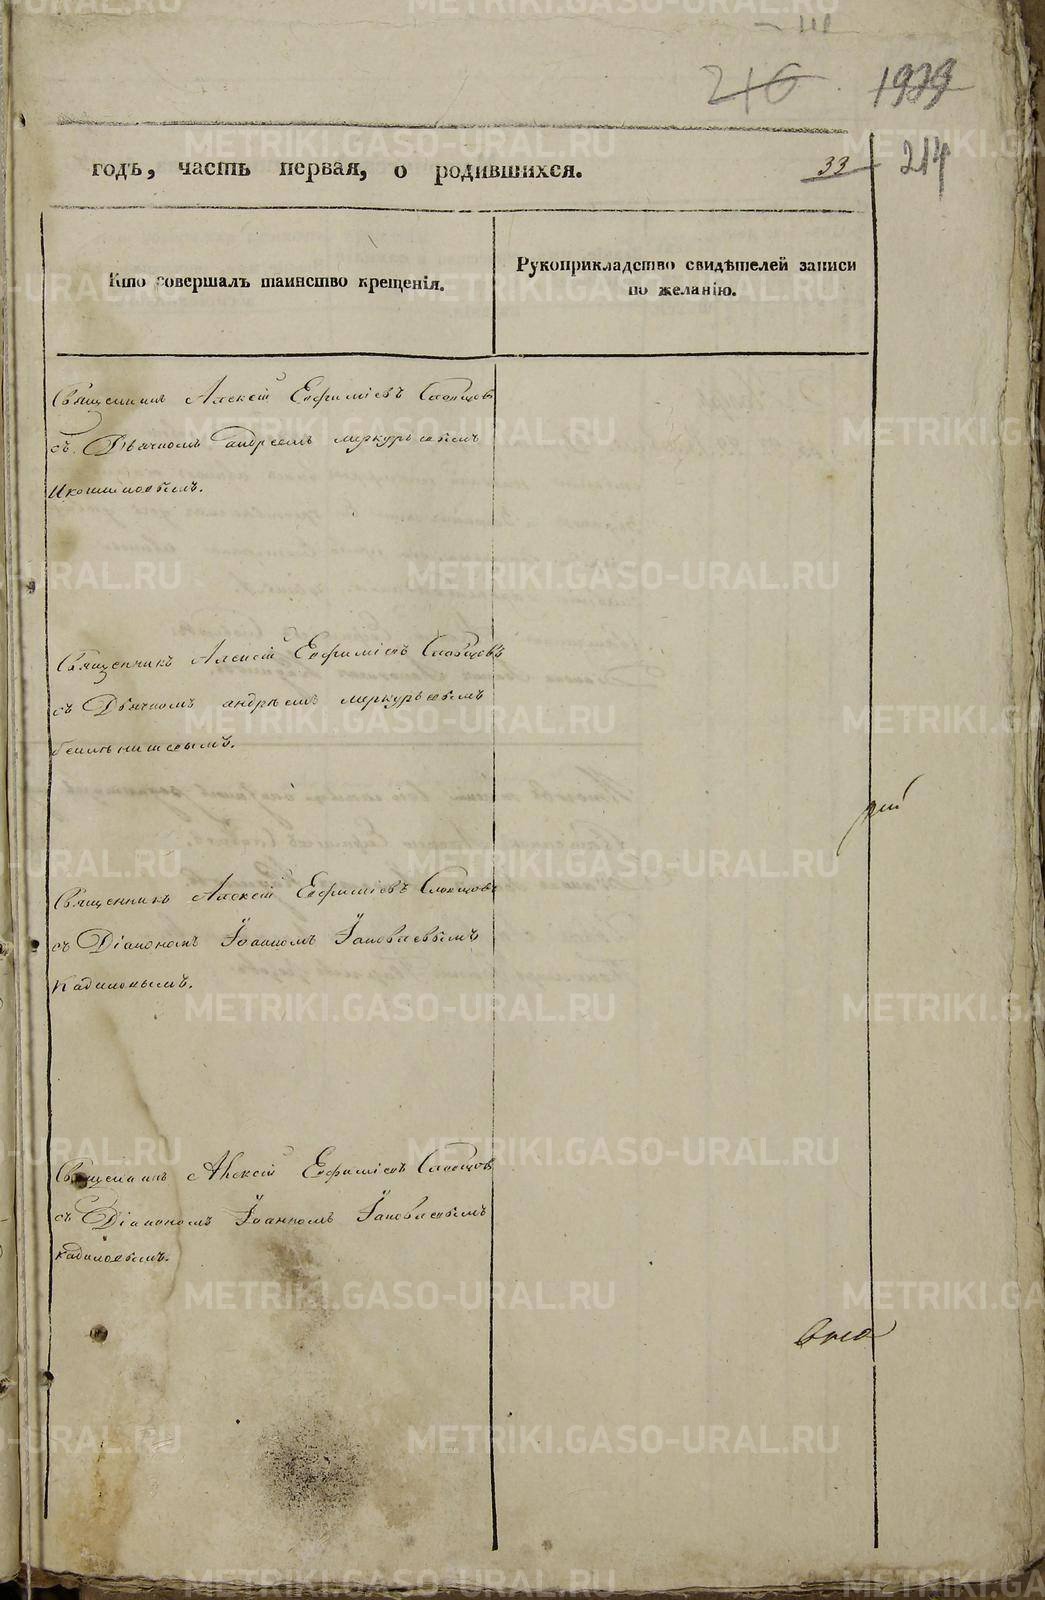 216 1939
годъ, часть первая, о родившихся. 33 214
Кто совершалъ таинство крещенія.
Рукоприкладство свидѣтелей записи
по желанію.
Священникъ Алексій Евфиміевъ Словцовъ
съ Дьячкомъ андреемъ меркурьевымъ
Священникъ Алексій Евфиміевъ Словцовъ
съ Дьячкомъ андреемъ меркурьевымъ
Священникъ Алексій Евфиміевъ Словцовъ
съ Діакономъ Іоанномъ Іаковлевымъ
Кадиловымъ.
Священникъ Алексій Евфиміевъ Словцовъ
съ Діакономъ Іоанномъ Іаковлевымъ
кадиловымъ.
METRIKI.GASO-URAL.RU